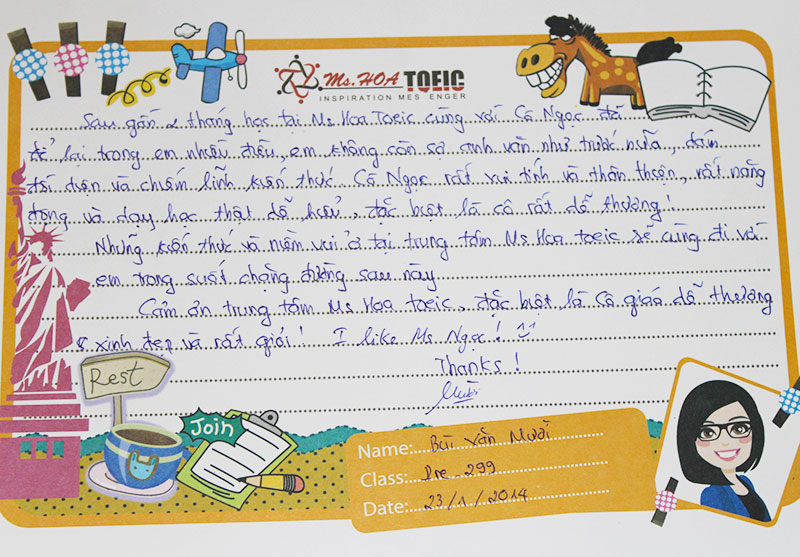 Ms. HOA TOEIC
INSPIRATION MESSENGER
Sau gần 2 tháng học tại Ms Hoa Toeic cùng với Cô Ngọc đã
để lại trong em nhiều điều, em không còn sợ anh văn như trước nữa, dám
đối diện và chiếm lĩnh kiến thức. Cô Ngọc rất vui tính và thân thiện, rất năng
động và dạy học thật dễ hiểu, đặc biệt là cô rất dễ thương!
Những kiến thức và niềm vui ở tại trung tâm Ms Hoa toeic sẽ cùng đi với
em trong suốt chặng đường sau này
Cảm ơn trung tâm Ms Hoa toeic, đặc biệt là cô giáo dễ thương
& xinh đẹp và rất giỏi! I like Ms Ngọc!
Thanks!
Mười
Rest
Join
Name: Bùi Văn Mười
Class: Pre 299
Date: 23/1/2014